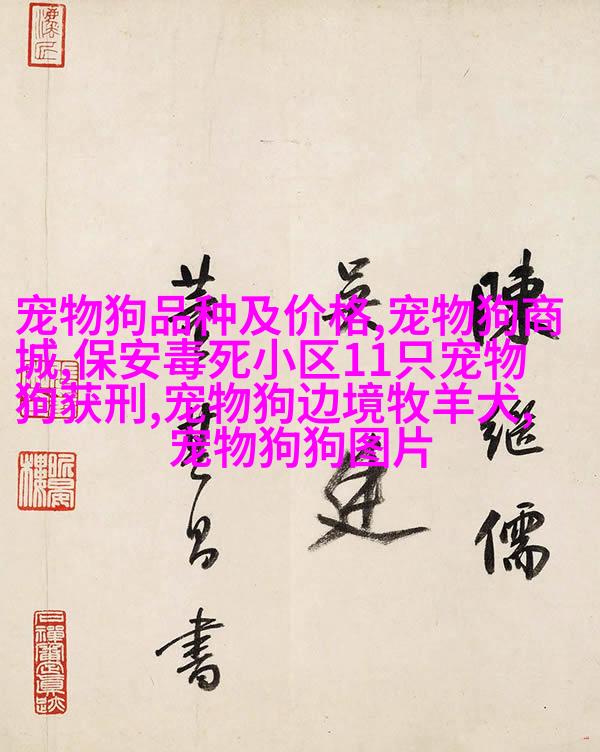 宠物狗品种及价格,宠物狗商
城,保安毒死小区11只宠物
狗获刑,宠物狗边境牧羊犬,
宠物狗狗图片
陳繼儒
吴廷
董其昌書